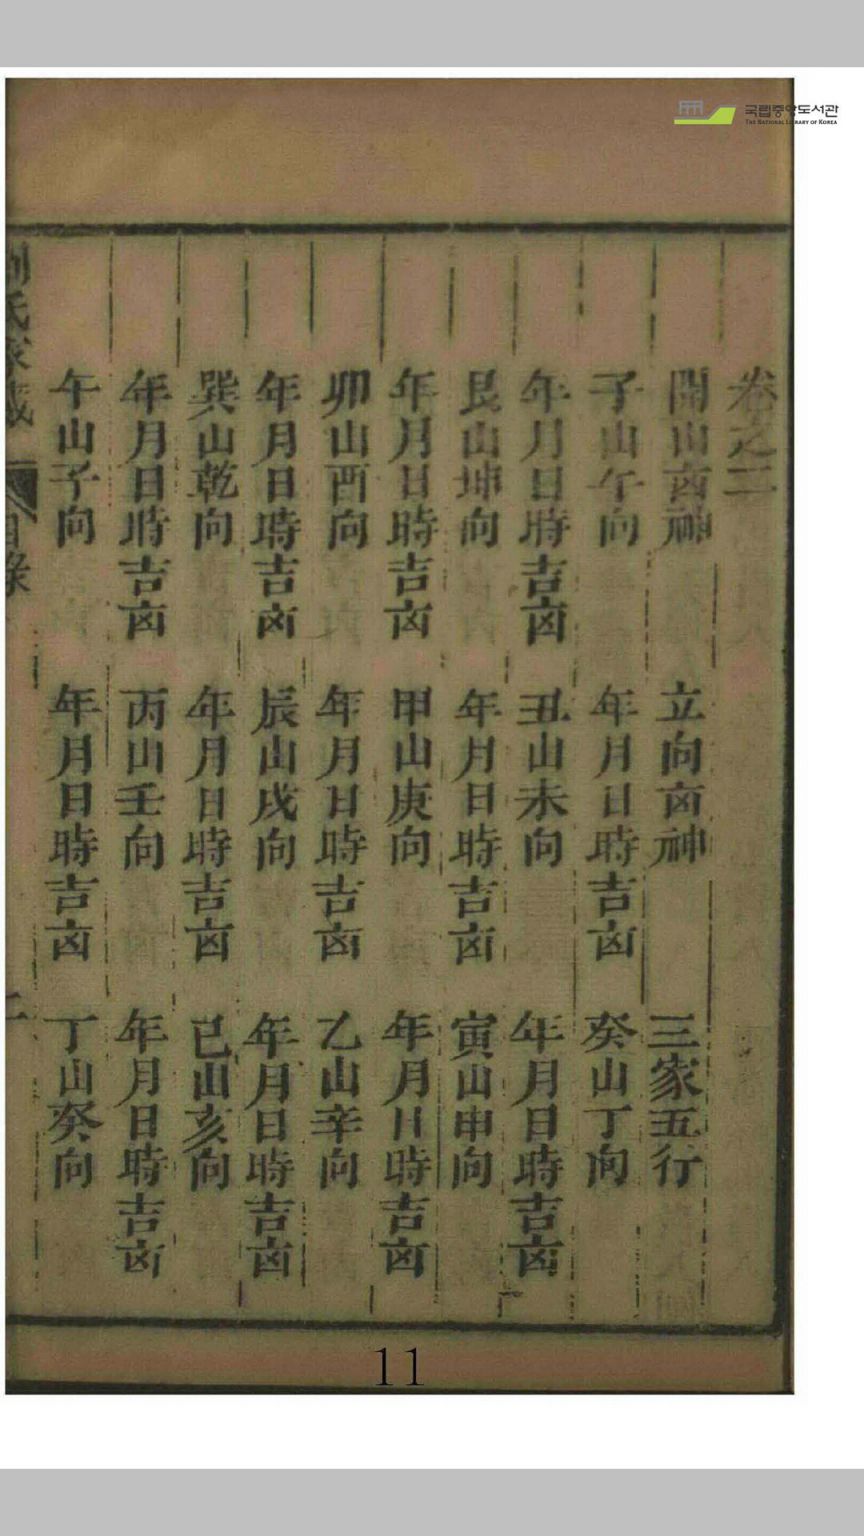 국립중앙도서관
THE NATIONAL LIBRARY OF KOREA
卷之二
開山㐫神 立向㐫神 三家五行
子山午向 年月日時吉㐫 癸山丁向
年月日時吉㐫 丑山未向 年月日時吉㐫
艮山坤向 年月日時吉㐫 寅山申向
年月日時吉㐫 甲山庚向 年月日時吉㐫
卯山酉向 年月日時吉㐫 乙山辛向
年月日時吉㐫 辰山戌向 年月日時吉㐫
巽山乾向 年月日時吉㐫 巳山亥向
年月日時吉㐫 丙山壬向 年月日時吉㐫
午山子向 年月日時吉㐫 丁山癸向
氏家藏 目錄 二
11